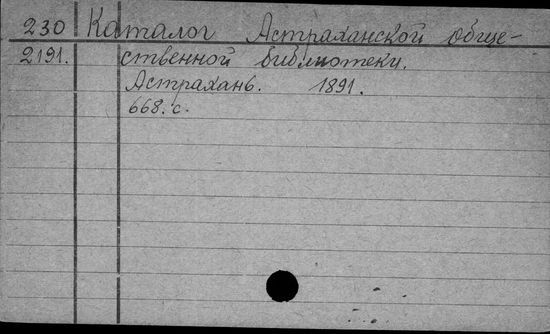 230 Каталог Астраханской обще-
2191. ственной библиотеки.
Астрахань. 1891.
668. с.